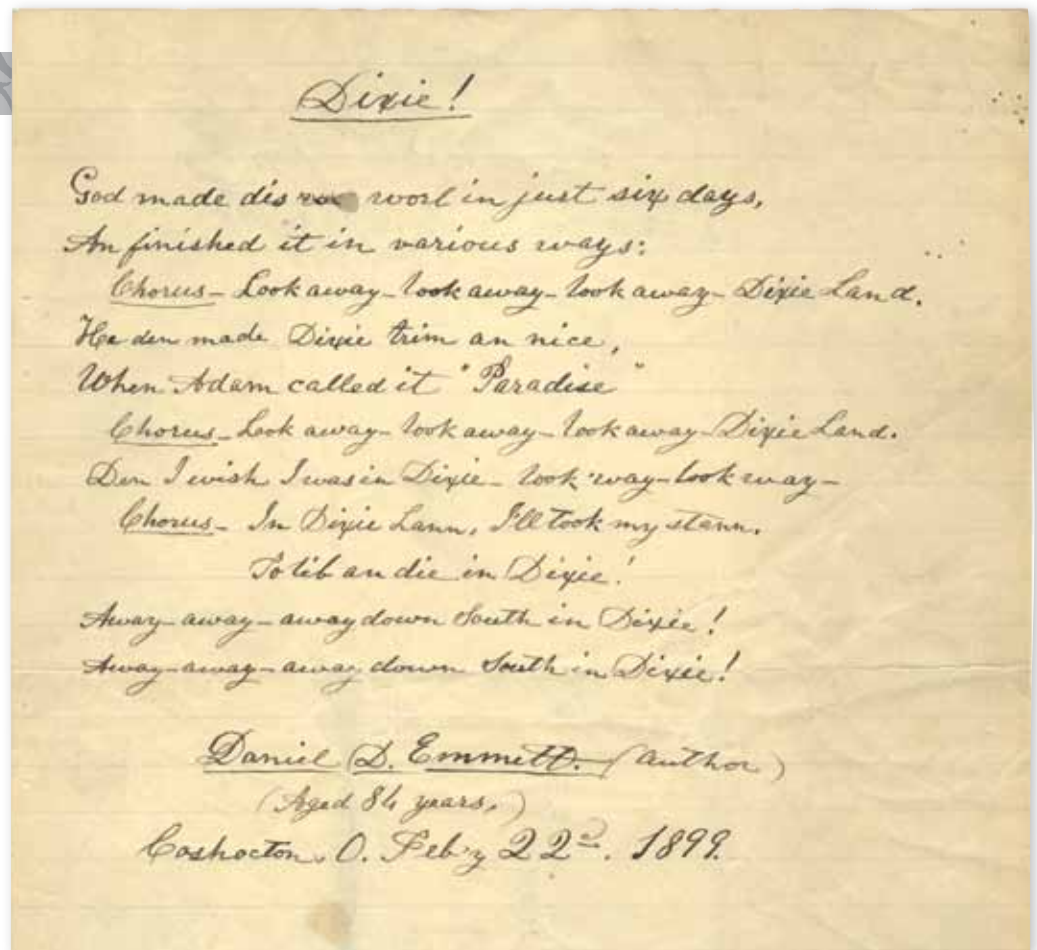 Dixie!
God made dis worl in just six days,
An finished it in various ways:
Chorus - Look away - look away - look away - Dixie Land.
He den made Dixie trim an nice,
When Adam called it "Paradise"
Chorus - Look away - look away - look away - Dixie Land.
Den I wish I was in Dixie - look 'way - look away -
Chorus - In Dixie Lann, I'll took my stann.
To lib an die in Dixie!
Away - away - away down South in Dixie!
Away - away - away down South in Dixie!
Daniel D. Emmett. (Author)
(Aged 84 years,)
Coshocton, O. Feb'y 22nd. 1899.